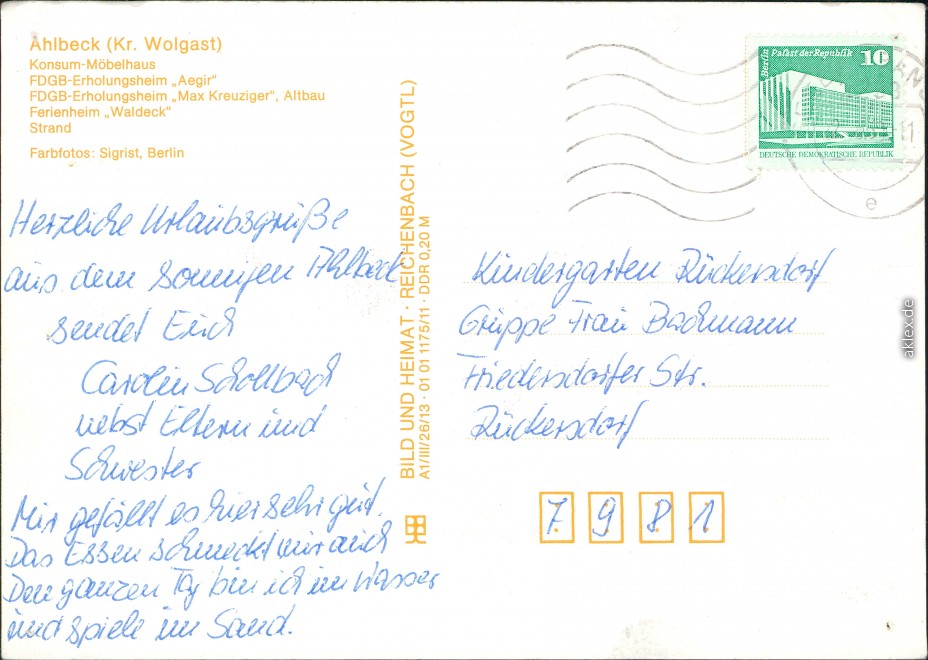 Ahlbeck (Kr. Wolgast)
Konsum-Möbelhaus
FDGB-Erholungsheim „Aegir“
FDGB-Erholungsheim „Max Kreuziger“, Altbau
Ferienheim „Waldeck“
Strand
Farbfotos: Sigrist, Berlin
Herzliche Urlaubsgrüße
aus dem sonnigen Ahlbeck
sendet Euch
Carolin Schollbach
nebst Eltern und
Schwester
Mir gefällt es hier sehr gut.
Das Essen schmeckt mir auch
Den ganzen Tag bin ich im Wasser
und spiele im Sand.
BILD UND HEIMAT · REICHENBACH (VOGTL)
A1/III/26/13 · 01 01 1175/11 · DDR 0,20 M
Berlin Palast der Republik 10
DEUTSCHE DEMOKRATISCHE REPUBLIK
e
Kindergarten Rückersdorf
Gruppe Frau Bachmann
Friedersdorfer Str.
Rückersdorf
7 9 8 1
aklex.de